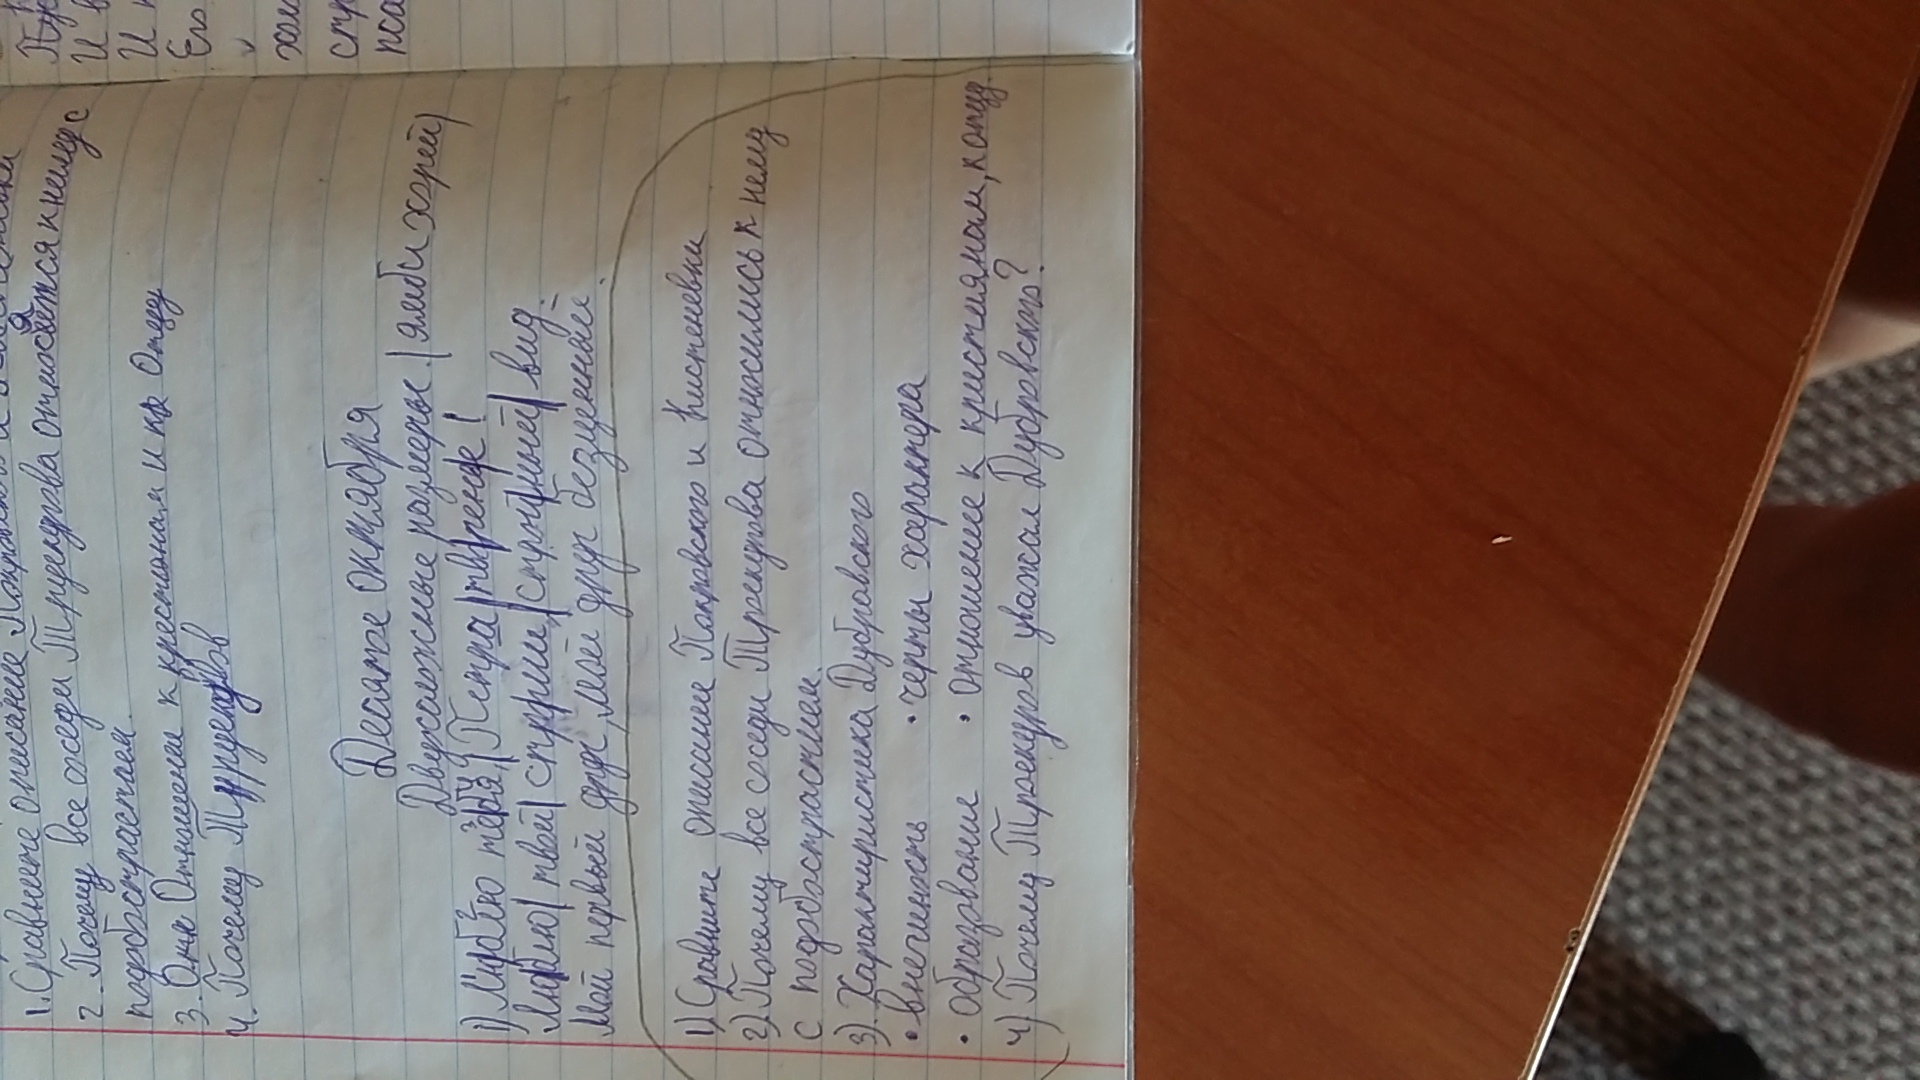 Пр
И в
И н
Его
хам
стр
пса
1. Сравнение описание Покровского и
2. Почему все соседи Троекурова относятся к нему с
подобострастием.
3. Отношение к крестьянам и к отцу
4. Почему
Десятое октября
Двусложные размеры. (ямб и хорей)
1) Люблю тебя | Петра | творенье!
Люблю | твой | строгий, | стройный | вид.
Мой первый друг, мой друг бесценный.
1) Сравните описание Покровского и Кистеневки
2) Почему все соседи Троекурова относились к нему
с подобострастием.
3) Характиристика Дубровского
• внешность • черты характера
• образование • отношение к крестьянам, к отцу.
4) Почему Троекуров уважал Дубровского?